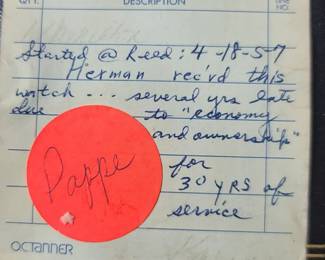 QTY.
DESCRIPTION
NO.
Started @ Reed: 4-18-57
Herman rec'rd this
watch... several yrs late
due to "economy
and ownership"
for
30 YRS of
service
Pappe
OCTANNER